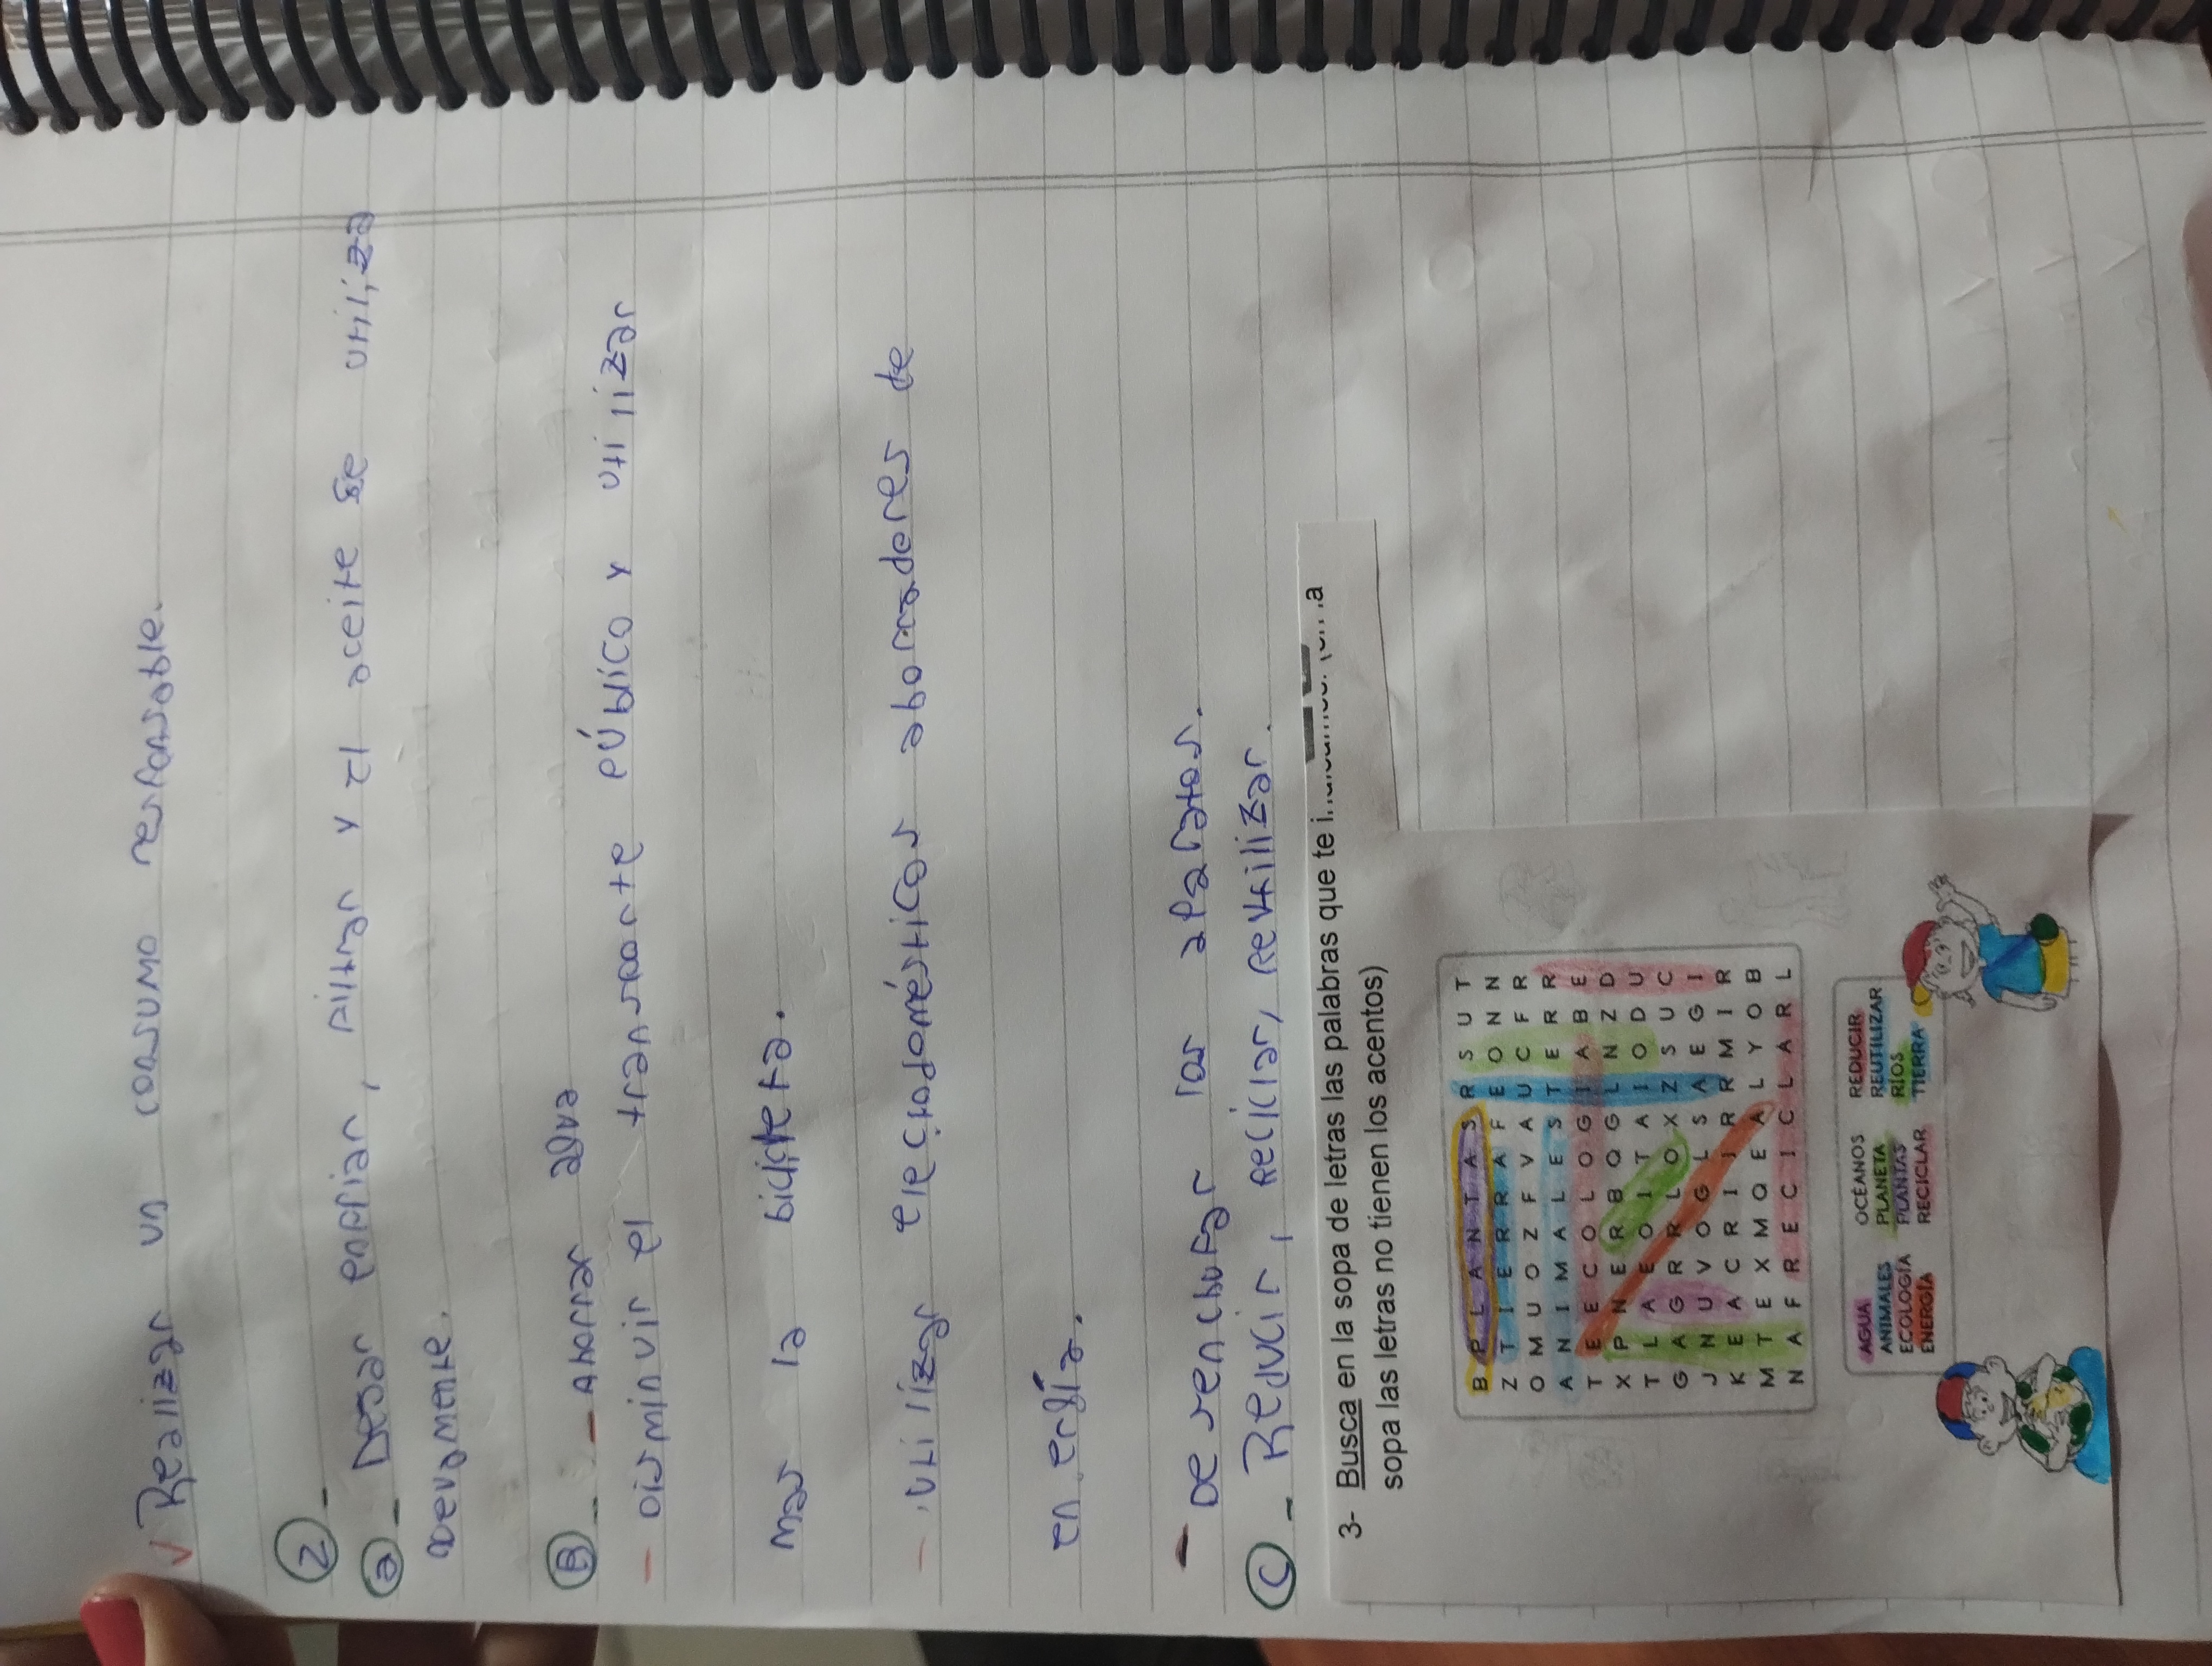 Realizar un consumo responsable.
2_
a_ Dejar enfriar, filtrar y el aceite se utiliza
nuevamente.
B_ - Ahorrar agua
- Disminuir el transporte público y utilizar
mas la bicicleta.
- utilizar electrodomésticos ahorradores de
en ergía.
- Desenchufar los aparatos.
C_ Reducir, Reciclar, Reutilizar.
3- Busca en la sopa de letras las palabras que te
sopa las letras no tienen los acentos)
B P L A N T A S R S U T
Z T I E R R A F E O N N
O M U O Z F V A U C F R
A N I M A L E S T E R R
T E E C O L O G I A B E
X P N E R B Q G L N Z D
T L A E O I T A I O D U
G A G R R L O X Z S U C
J N U V O G L S A E G I
K E A C R I I R R M I R
M T E X M Q E A L Y O B
N A F R E C I C L A R L
AGUA OCÉANOS REDUCIR
ANIMALES PLANETA REUTILIZAR
ECOLOGÍA PLANTAS RÍOS
ENERGÍA RECICLAR TIERRA